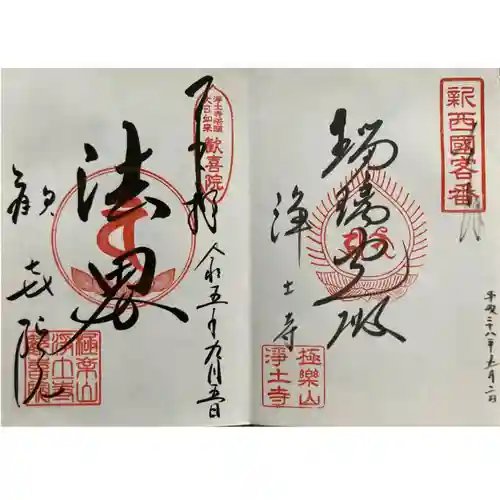 新西國客番
奉拝
瑠璃殿
浄土寺
極樂山
淨土寺
平成二十八年十一月二日
浄土寺塔頭
大日如来
歓喜院
奉拝
法界
歓喜院
令和五年九月五日
極楽山
浄土寺
歓喜院